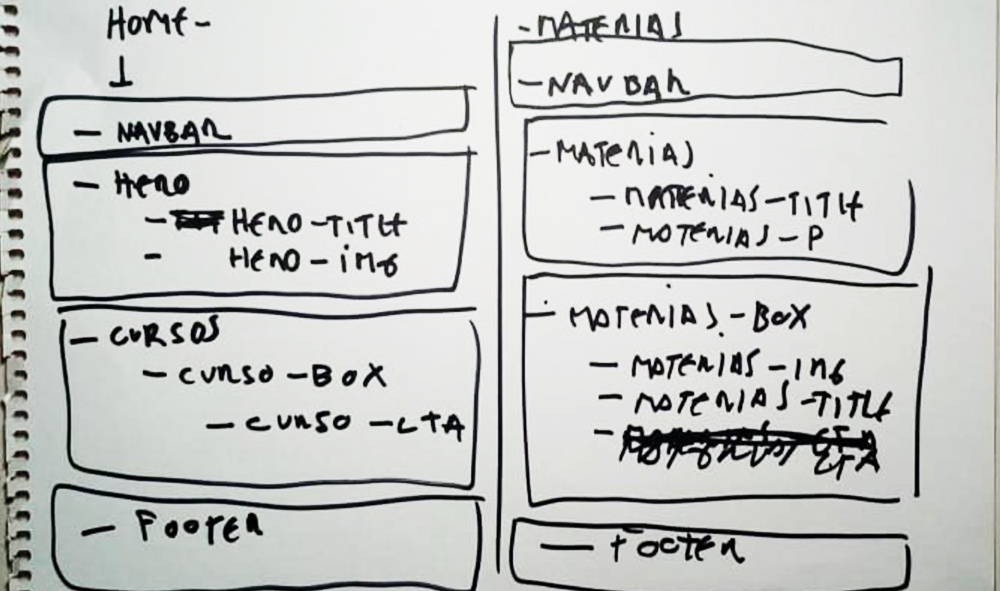 HOME -
- NAVBAR
- HERO
- HERO-TITLE
- HERO-IMG
- CURSOS
- CURSO-BOX
- CURSO-CTA
- FOOTER
- MATERIAS
- NAVBAR
- MATERIAS
- MATERIAS-TITLE
- MATERIAS-P
- MATERIAS-BOX
- MATERIAS-IMG
- MATERIAS-TITLE
- CTA
- FOOTER